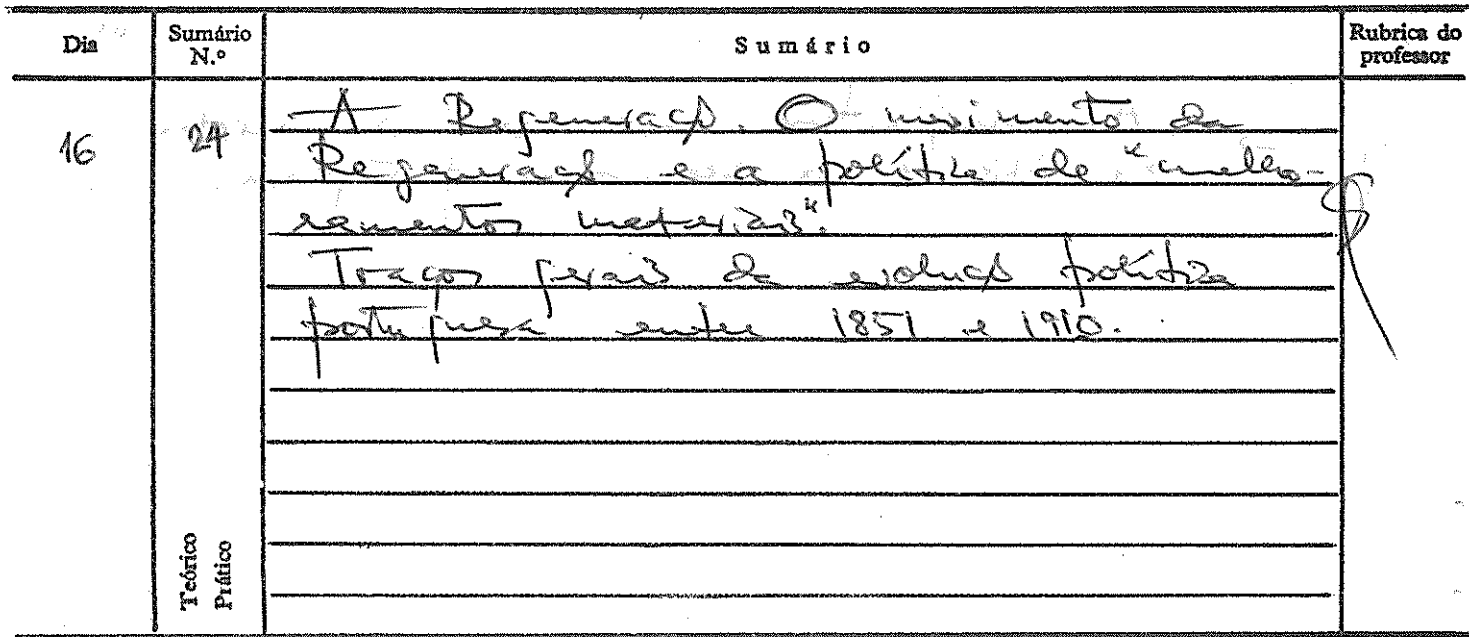 Dia
Sumário
N.º
Sumário
Rubrica do
professor
16
24
A Regeneração. O movimento da
Regeneração e a política de "melho-
ramentos materiais".
Traços gerais da evolução política
portuguesa entre 1851 e 1910.
Teórico
Prático